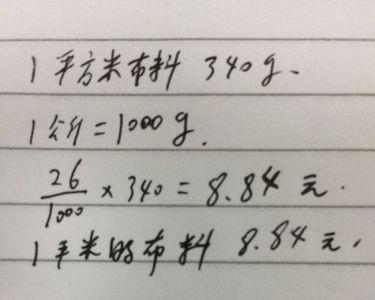 1平方米布料 340g.
1公斤=1000g.
26/1000 × 340 = 8.84元.
1平米的布料 8.84元,